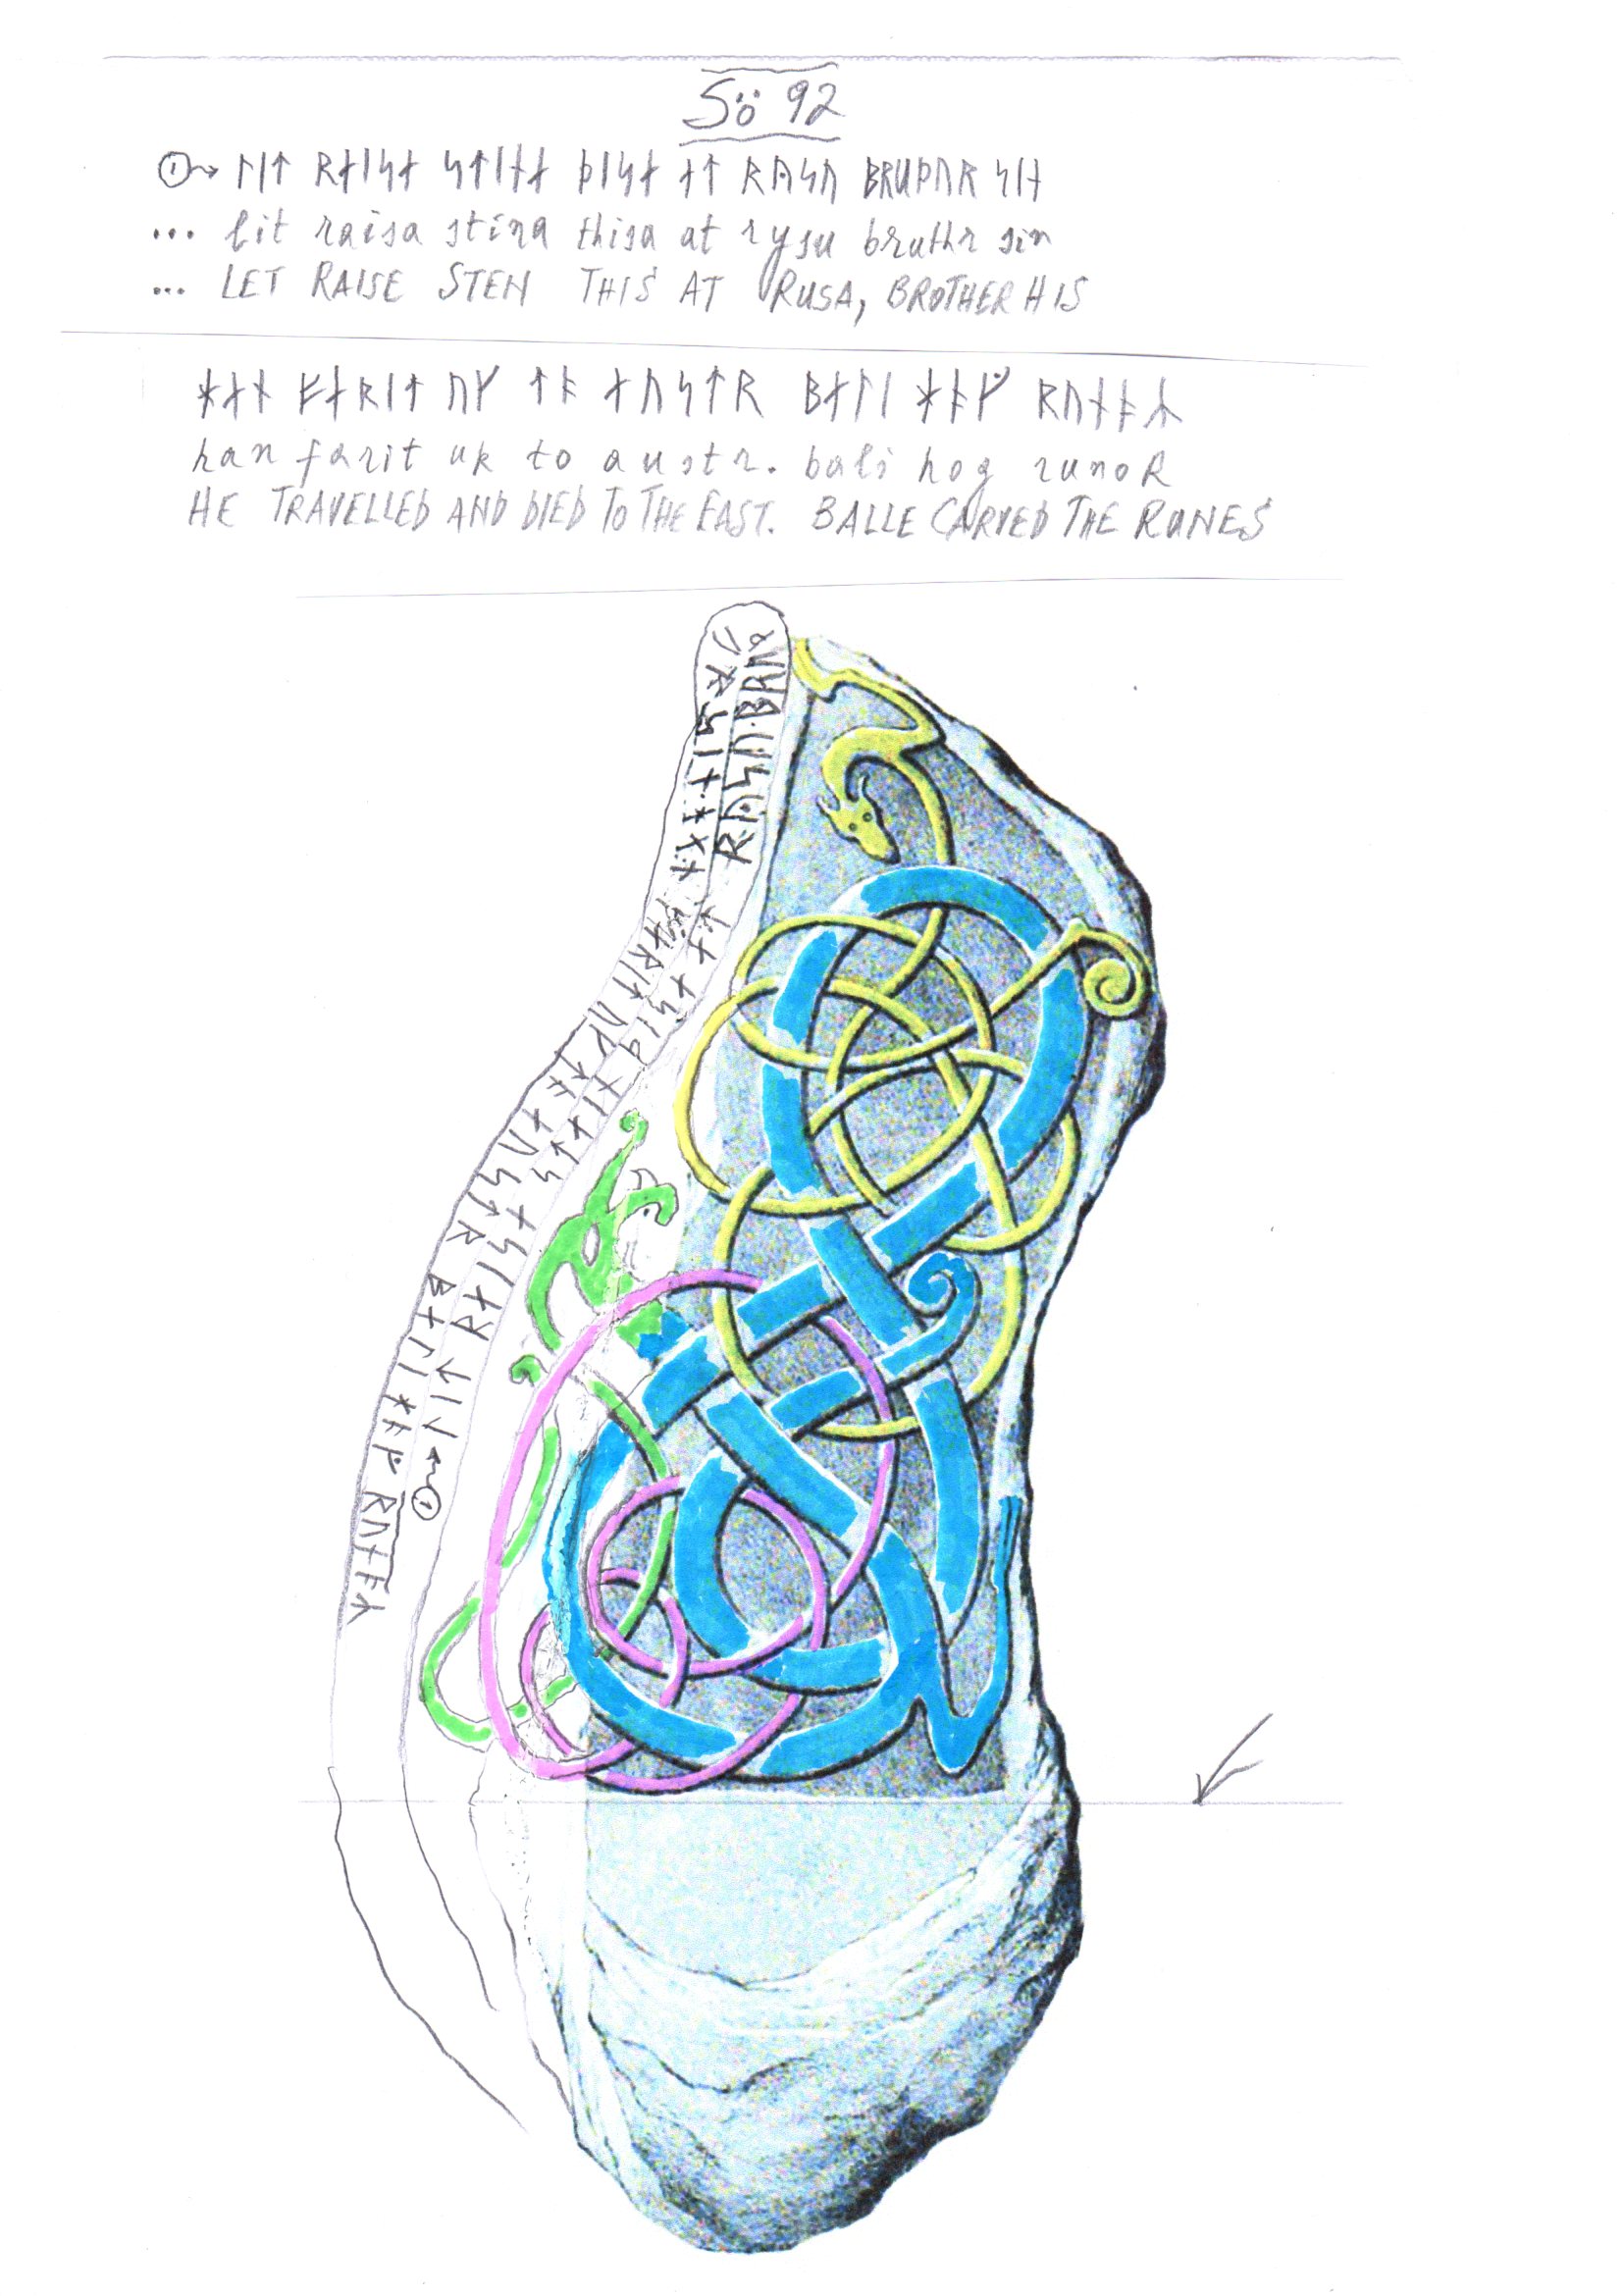 Sö 92
① → ᛚᛁᛏ ᚱᛅᛁᛋᛅ ᛋᛏᛁᚾᛅ ᚦᛁᛋᛅ ᛅᛏ ᚱᚤᛋᚢ ᛒᚱᚢᚦᚢᚱ ᛋᛁᚾ
... lit raisa stina thisa at rysu bruthr sin
... LET RAISE STEN THIS AT RUSA, BROTHER HIS
ᚼᛅᚾ ᚠᛅᚱᛁᛏ ᚢᚴ ᛏᚬ ᛅᚢᛋᛏᚱ ᛒᛅᛚᛁ ᚼᚬᚵ ᚱᚢᚾᚬᛦ
han farit uk to austr. bali hog runoR
HE TRAVELLED AND DIED TO THE EAST. BALLE CARVED THE RUNES